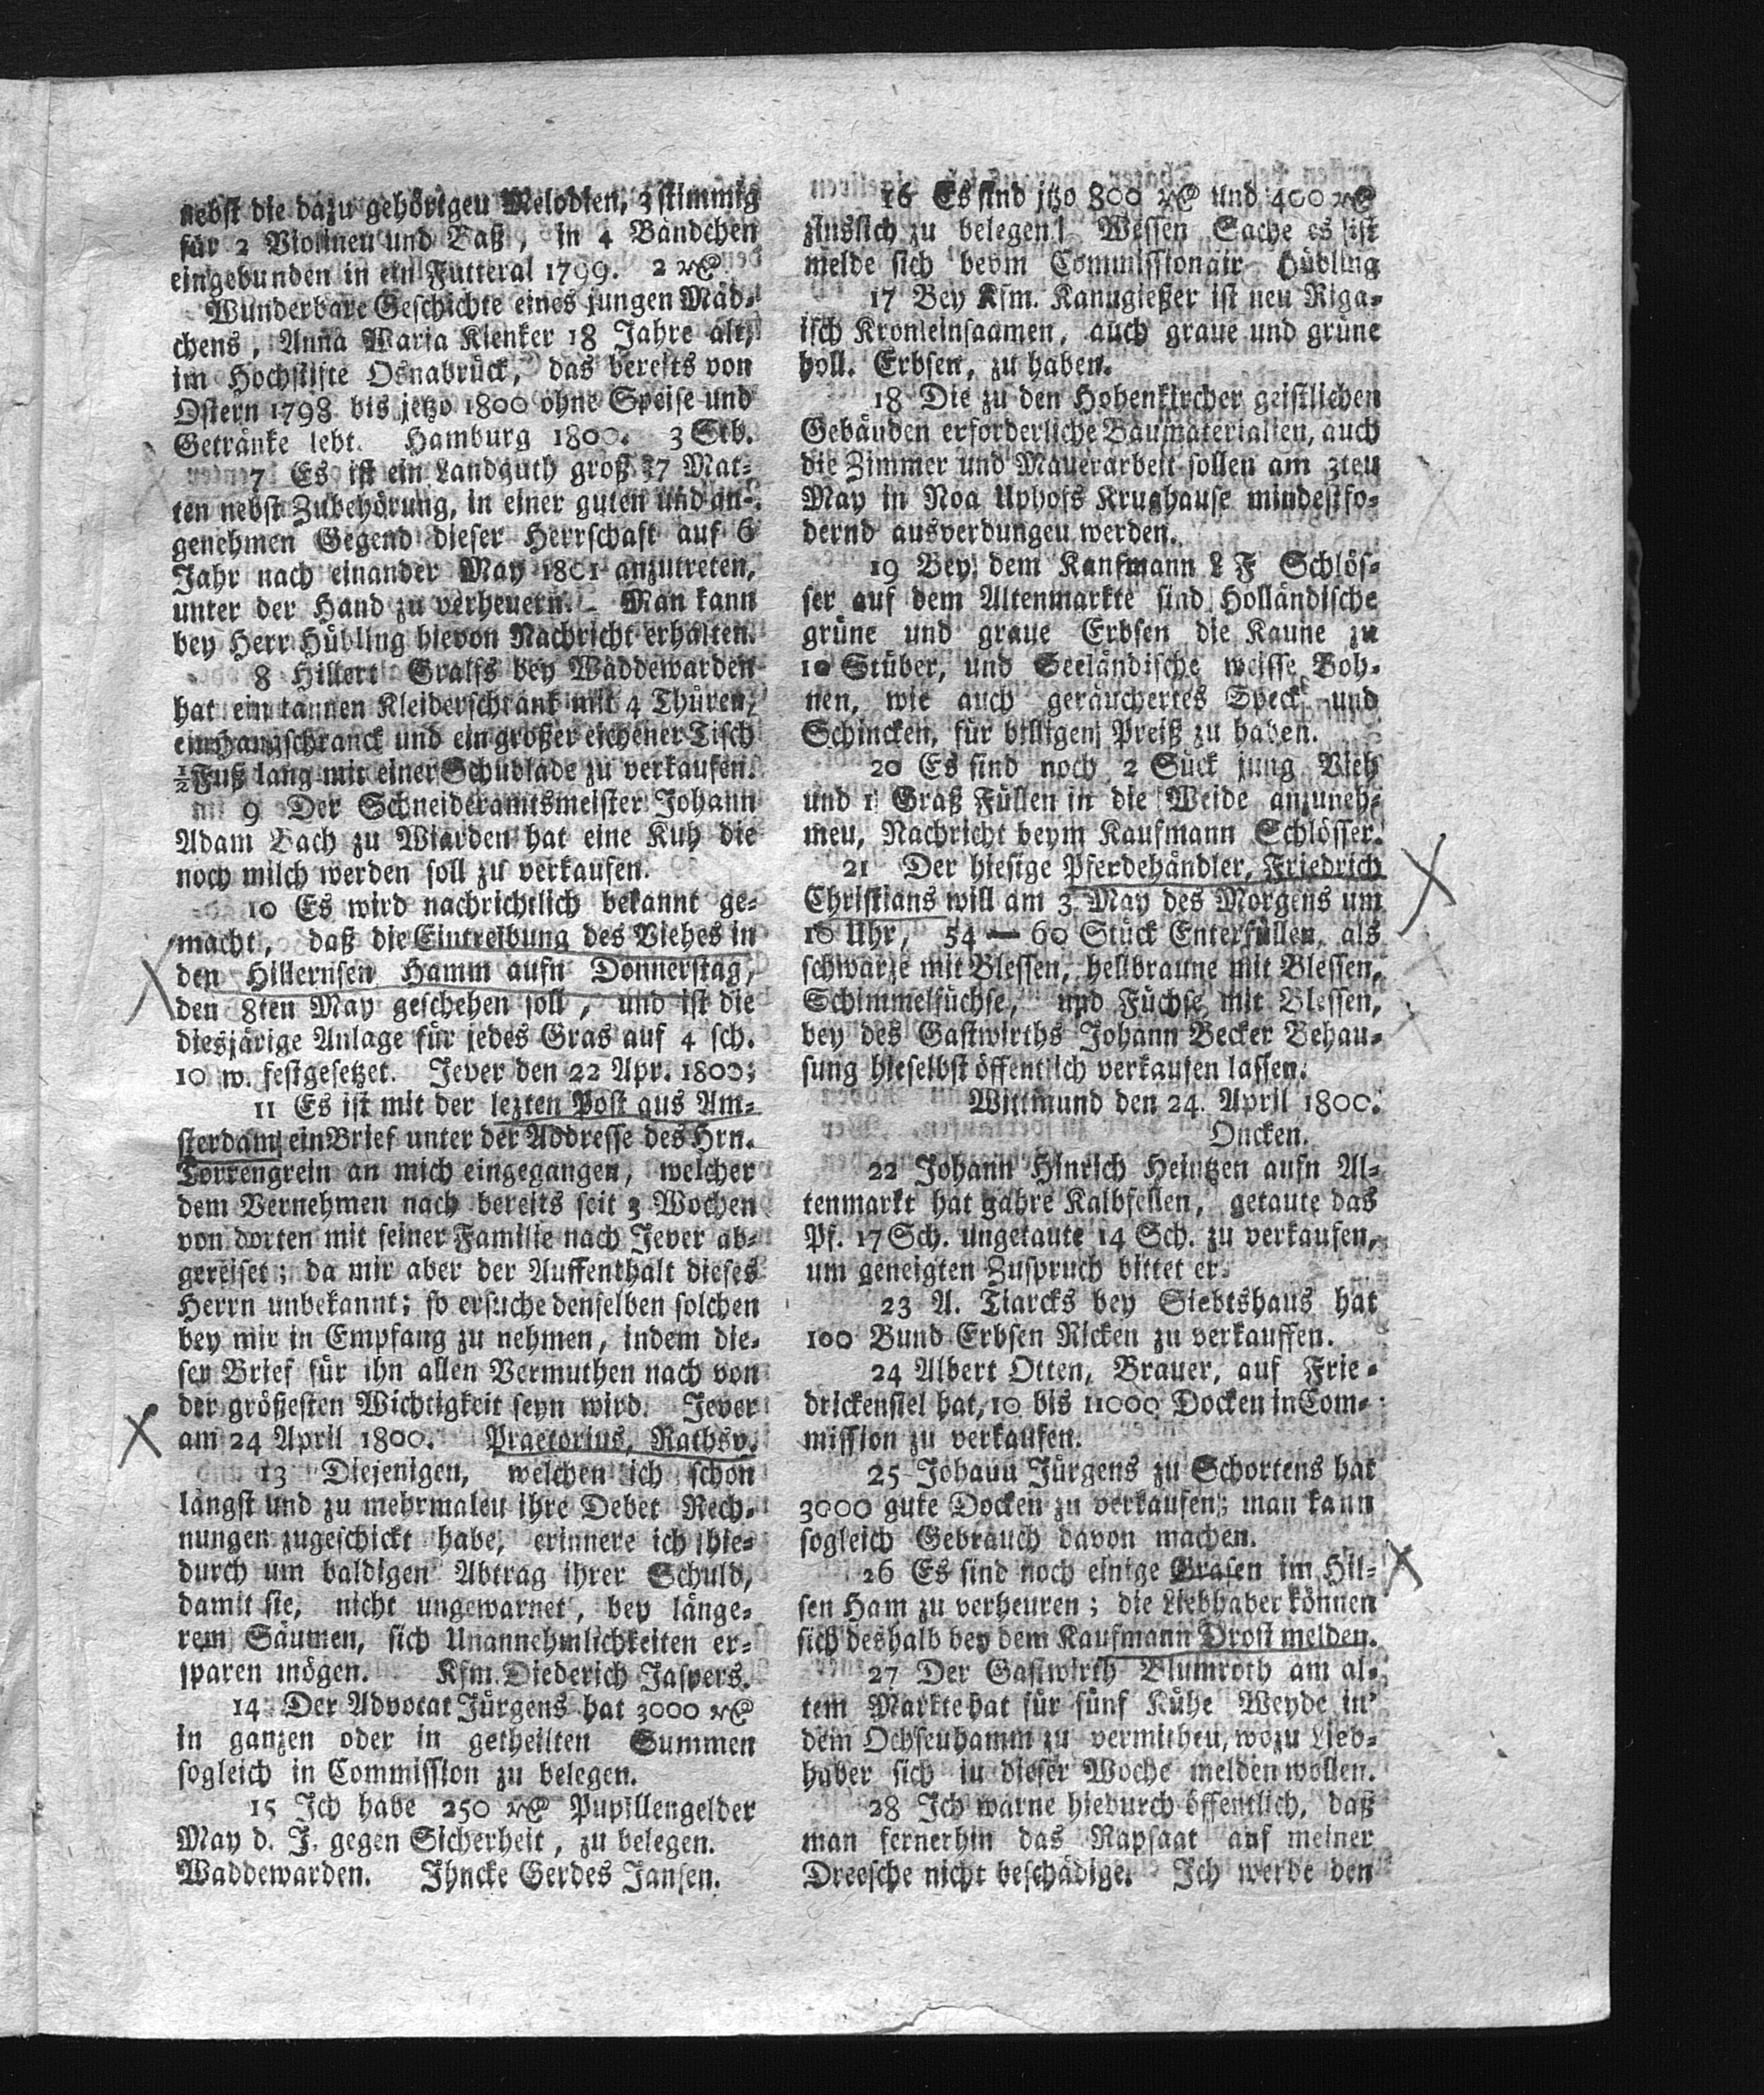 nebst die dazu gehörigen Melodien, 3stimmig
für 2 Violinen und Baß, in 4 Bändchen
eingebunden in ein Futteral 1799. 2 rC
Wunderbare Geschichte eines jungen Mäd-
chens, Anna Maria Kienker 18 Jahre alt,
im Hochstifte Osnabrück, das bereits von
Ostern 1798 bis jetzo 1800 ohne Speise und
Getränke lebt. Hamburg 1800. 3 Stb.
7 Es ist ein Landguth groß 37 Mat-
ten nebst Zubehörung, in einer guten und an-
genehmen Gegend dieser Herrschaft auf 6
Jahr nach einander May 1801 anzutreten,
unter der Hand zu verheuern. Man kann
bey Herr Hübling hievon Nachricht erhalten.
8 Hillert Gralfs bey Waddewarden
hat ein tannen Kleiderschrank mit 4 Thüren,
ein Hangschranck und ein großer eichener Tisch
1/2 Fuß lang mit einer Schublade zu verkaufen.
9 Der Schneideramtsmeister Johann
Adam Bach zu Wiarden hat eine Kuh die
noch milch werden soll zu verkaufen.
10 Es wird nachrichtlich bekannt ge-
macht, daß die Eintreibung des Viehes in
den Hillernsen Hamm aufn Donnerstag,
den 8ten May geschehen soll, und ist die
diesjärige Anlage für jedes Gras auf 4 sch.
10 w. festgesetzet. Jever den 22 Apr. 1800.
11 Es ist mit der lezten Post aus Am-
sterdam ein Brief unter der Addresse des Hrn.
Torrengrein an mich eingegangen, welcher
dem Vernehmen nach bereits seit 3 Wochen
von dorten mit seiner Familie nach Jever ab-
gereiset; da mir aber der Auffenthalt dieses
Herrn unbekannt; so ersuche denselben solchen
bey mir in Empfang zu nehmen, indem die-
sen Brief für ihn allen Vermuthen nach von
der größesten Wichtigkeit seyn wird. Jever
am 24 April 1800. Praetorius, Rathsv.
13 Diejenigen, welchen ich schon
längst und zu mehrmalen ihre Debet Rech-
nungen zugeschickt habe, erinnere ich hie-
durch um baldigen Abtrag ihrer Schuld,
damit sie, nicht ungewarnet, bey länge-
rem Säumen, sich Unannehmlichkeiten er-
sparen mögen. Kfm. Diederich Jaspers.
14 Der Advocat Jürgens hat 3000 rC
in ganzen oder in getheilten Summen
sogleich in Commission zu belegen.
15 Ich habe 250 rC Pupillengelder
May d. J. gegen Sicherheit, zu belegen.
Waddewarden. Ihncke Gerdes Jansen.
16 Es sind jtzo 800 rC und 400 rC
zinslich zu belegen. Wessen Sache es ist
melde sich beym Commissionair Hübling
17 Bey Kfm. Kanngießer ist neu Riga-
isch Kronleinsaamen, auch graue und grüne
holl. Erbsen, zu haben.
18 Die zu den Hohenkircher geistlichen
Gebäuden erforderliche Baumaterialien, auch
die Zimmer und Mauerarbeit sollen am 3ten
May in Noa Uphofs Krughause mindestfo-
dernd ausverdungen werden.
19 Bey dem Kaufmann L F Schlös-
ser auf dem Altenmarkte sind Holländische
grüne und graue Erbsen die Kanne zu
10 Stüber, und Seeländische weisse Boh-
nen, wie auch geräuchertes Speck und
Schincken, für billigen Preiß zu haben.
20 Es sind noch 2 Sück jung Vieh
und 1 Graß Füllen in die Weide anzuneh-
men, Nachricht beym Kaufmann Schlösser.
21 Der hiesige Pferdehändler, Friedrich
Christians will am 3 May des Morgens um
10 Uhr, 54 — 60 Stück Enterfüllen, als
schwarze mit Blessen, hellbraune mit Blessen,
Schimmelfüchse, und Füchse mit Blessen,
bey des Gastwirths Johann Becker Behau-
sung hieselbst öffentlich verkaufen lassen.
Wittmund den 24. April 1800.
Oncken.
22 Johann Hinrich Heintzen aufn Al-
tenmarkt hat gahre Kalbfellen, getaute das
Pf. 17 Sch. ungetaute 14 Sch. zu verkaufen,
um geneigten Zuspruch bittet er.
23 A. Tiarcks bey Siebtshaus hat
100 Bund Erbsen Ricken zu verkauffen.
24 Albert Otten, Brauer, auf Frie-
drickensiel hat, 10 bis 11000 Docken in Com-
mission zu verkaufen.
25 Johann Jürgens zu Schortens hat
3000 gute Docken zu verkaufen; man kann
sogleich Gebrauch davon machen.
26 Es sind noch einige Grasen im Hil-
sen Ham zu verheuren; die Liebhaber können
sich deshalb bey dem Kaufmann Drost melden.
27 Der Gastwirth Blumroth am al-
tem Markte hat für fünf Kühe Weyde in
dem Ochsenhamm zu vermithen, wozu Lieb-
haber sich in dieser Woche melden wollen.
28 Ich warne hiedurch öffentlich, daß
man fernerhin das Rapsaat auf meiner
Dreesche nicht beschädige. Ich werde den